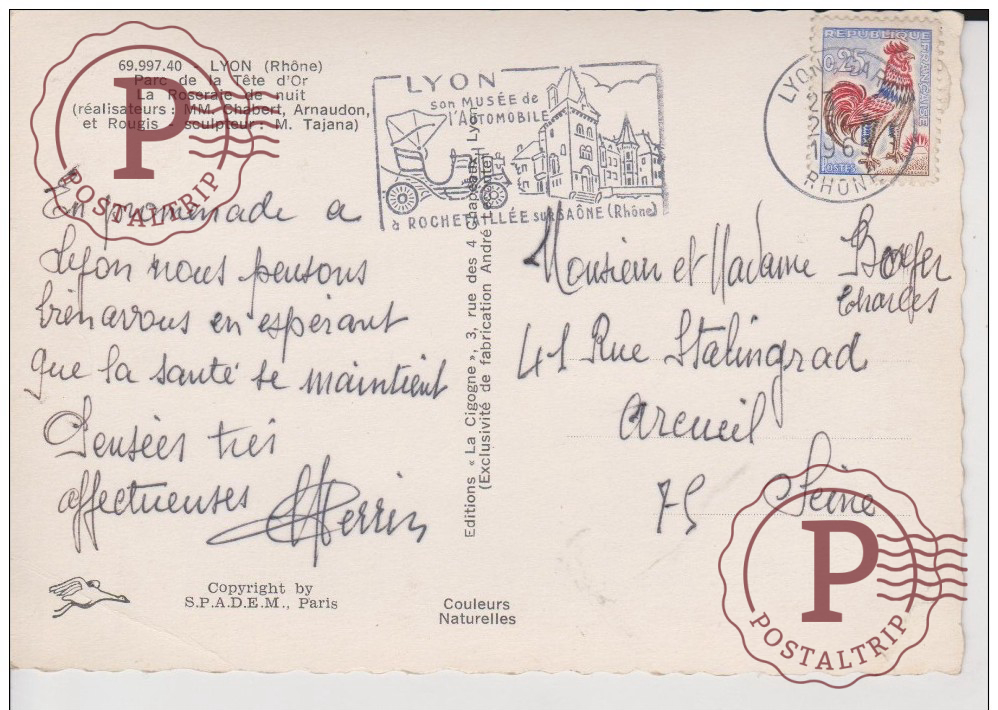 69.997.40 LYON (Rhône)
Parc de la Tête d'Or
La Roseraie de nuit
(réalisateurs : MM. Chabert, Arnaudon,
et Rougis sculpteur : M. Tajana)
P
POSTALTRIP
LYON
son MUSÉE de
l'AUTOMOBILE
à ROCHETAILLÉE sur SAÔNE (Rhône)
LYON
RHÔNE
REPUBLIQUE
FRANÇAISE
0,25
POSTES
En promenade a
Lyon nous pensons
bien avous en espérant
que la santé se maintient
Pensées très
affectueuses
Perrin
Editions « La Cigogne », 3, rue des 4 Chapeaux, Lyon
(Exclusivité de fabrication André
Monsieur et Madame
Charles
41 Rue Stalingrad
Arcueil
75 Seine
Copyright by
S.P.A.D.E.M., Paris
Couleurs
Naturelles
P
POSTALTRIP